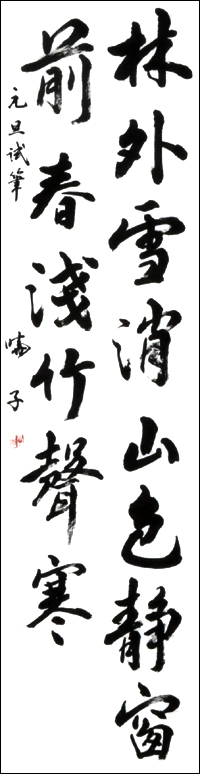 林外雪消山色靜窗
前春淺竹聲寒
元旦试筆 嘯子